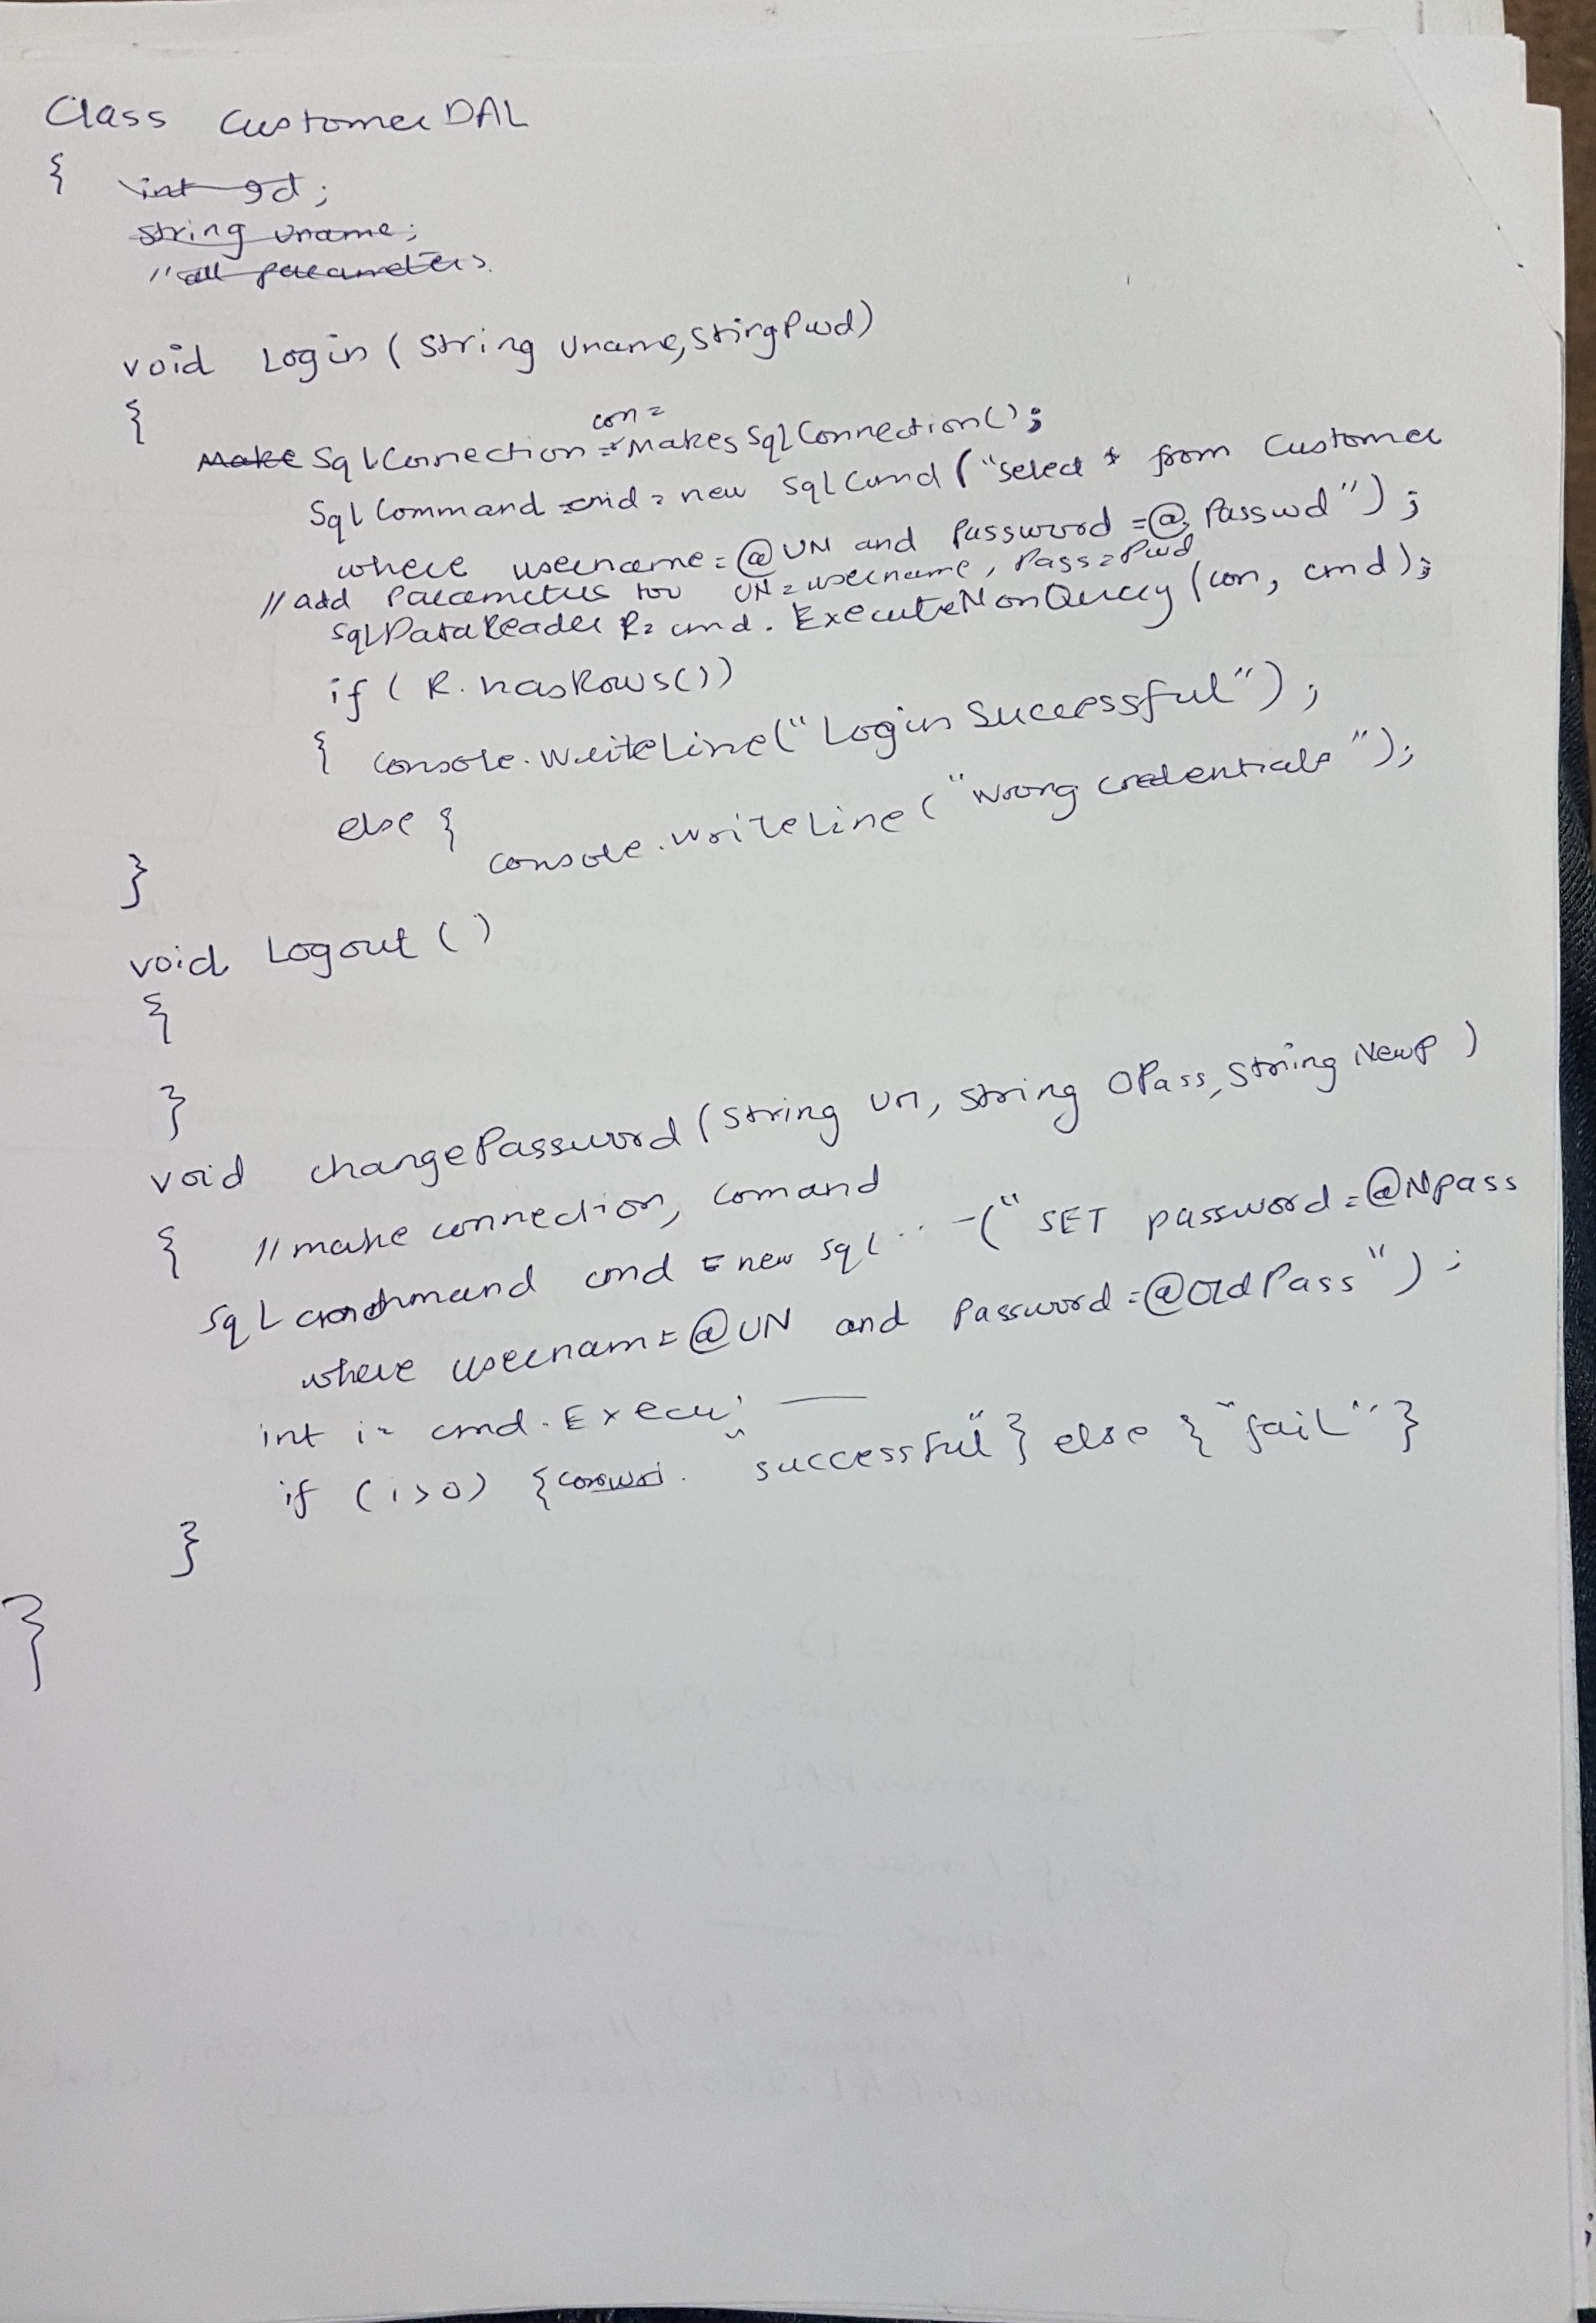 Class CustomerDAL
{ int Id;
string Uname;
// all parameters.
void Login ( String Uname, StingPwd)
{
con =
Make SqlConnection = MakesSqlConnection();
Sql Command cmd = new Sql Cmd ("Select * from Customer
where username = @UN and Password = @Passwd");
// add Parameters for UN = username, Pass = Pwd
SqlDataReader R = cmd. ExecuteNonQuery (con, cmd);
if ( R. hasRows())
{ console.WriteLine("Login Successful");
else {
console.writeLine ("Wrong credentials");
}
void Logout ( )
{
}
void changePassword (String Un, String OPass, String NewP )
{ // make connection, comand
Sql command cmd = new Sql .. - (" SET password = @Npass
where usernam = @UN and Password = @OldPass");
int i = cmd. Execu
if (i>0) { "successful" } else { "fail" }
}
}